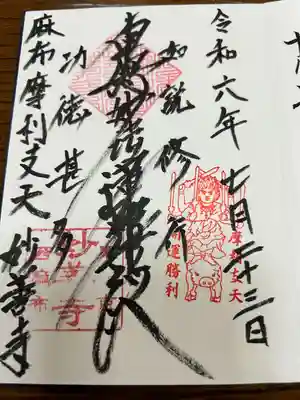 令和六年七月二十三日
如説修行
南無妙法蓮華経
功徳甚多
麻布摩利支天 妙善寺
摩利支天
開運勝利